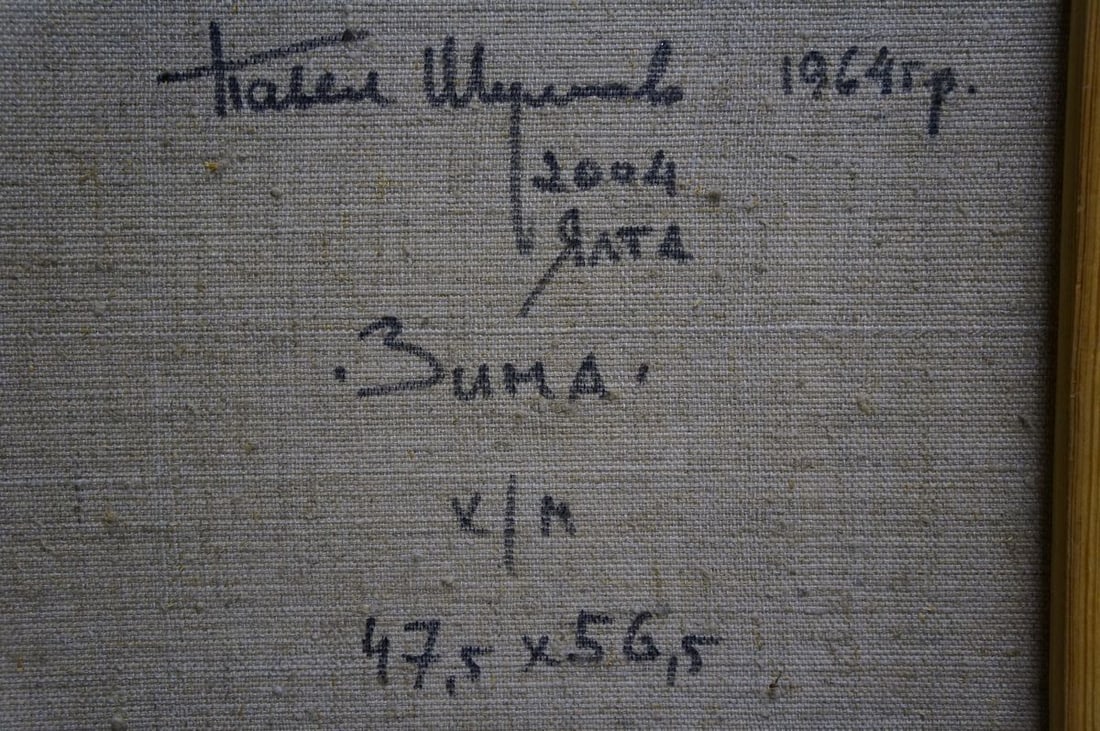 Павел Шумов 1964г.р.
2004
Ялта
·Зима·
х/м
47,5 х 56,5